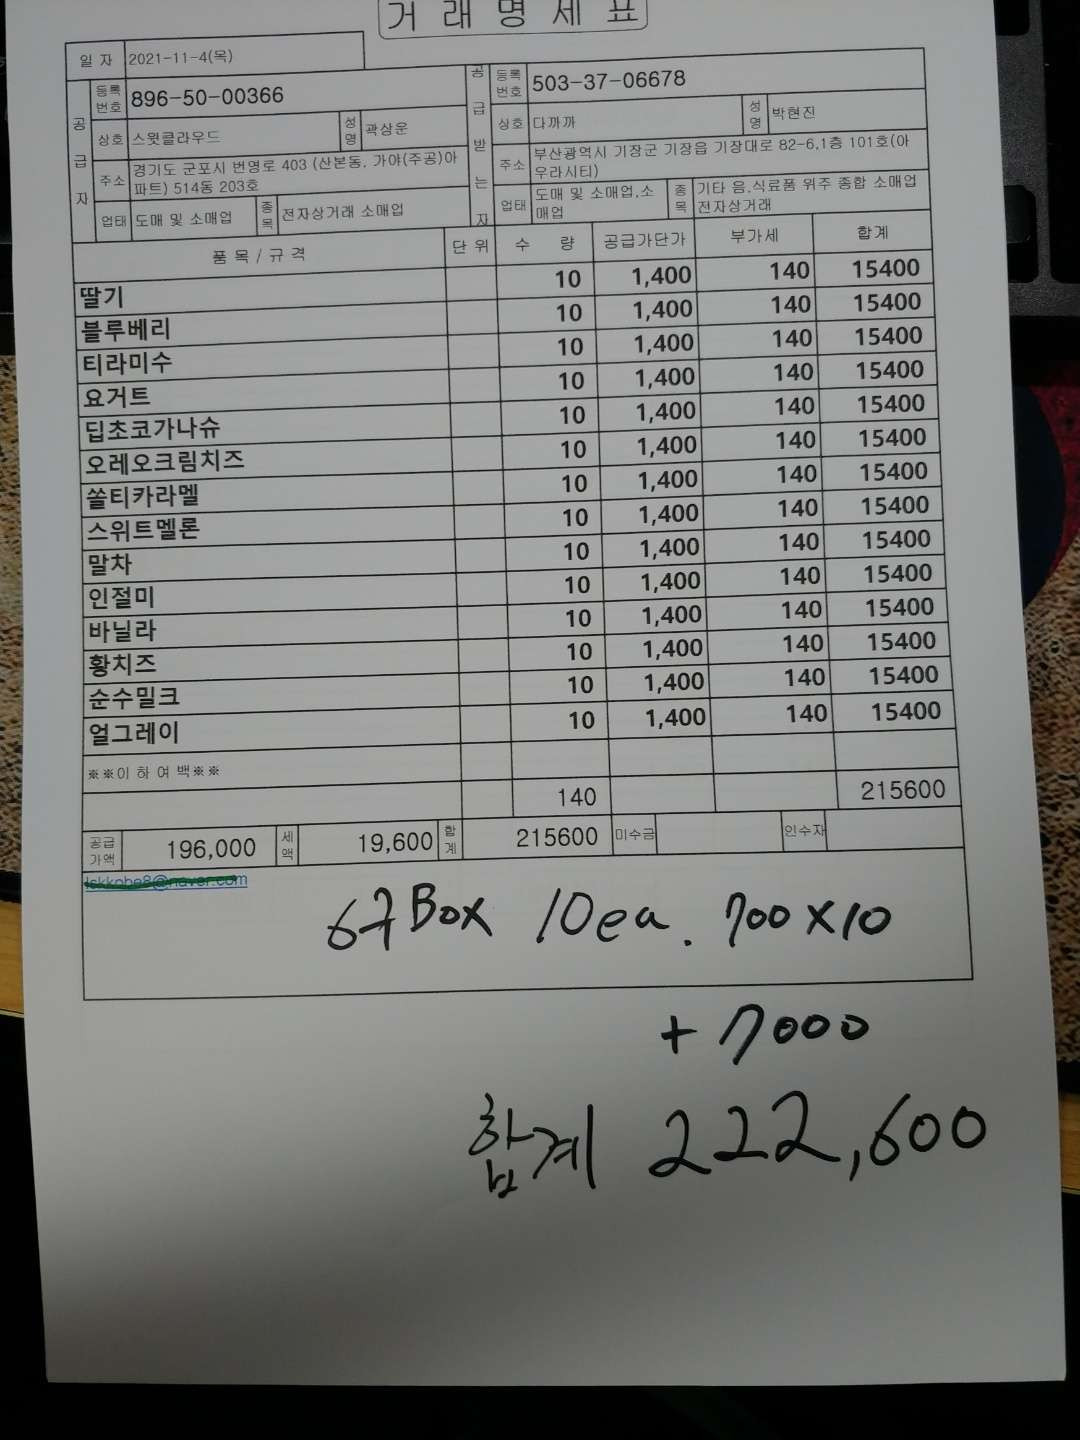 거 래 명 세 표
일 자 2021-11-4(목)
공급자 등록번호 896-50-00366 공급받는자 등록번호 503-37-06678
상호 스윗클라우드 성명 곽상운 상호 다까까 성명 박현진
주소 경기도 군포시 번영로 403 (산본동, 가야(주공)아파트) 514동 203호 주소 부산광역시 기장군 기장읍 기장대로 82-6,1층 101호(아우라시티)
업태 도매 및 소매업 종목 전자상거래 소매업 업태 도매 및 소매업,소매업 종목 기타 음.식료품 위주 종합 소매업 전자상거래
품 목 / 규 격 단 위 수 량 공급가단가 부가세 합계
딸기 10 1,400 140 15400
블루베리 10 1,400 140 15400
티라미수 10 1,400 140 15400
요거트 10 1,400 140 15400
딥초코가나슈 10 1,400 140 15400
오레오크림치즈 10 1,400 140 15400
쏠티카라멜 10 1,400 140 15400
스위트멜론 10 1,400 140 15400
말차 10 1,400 140 15400
인절미 10 1,400 140 15400
바닐라 10 1,400 140 15400
황치즈 10 1,400 140 15400
순수밀크 10 1,400 140 15400
얼그레이 10 1,400 140 15400
※※이 하 여 백※※
140 215600
공급가액 196,000 세액 19,600 합계 215600 미수금 인수자
6구 Box 10ea. 700×10
+ 7000
합계 222,600